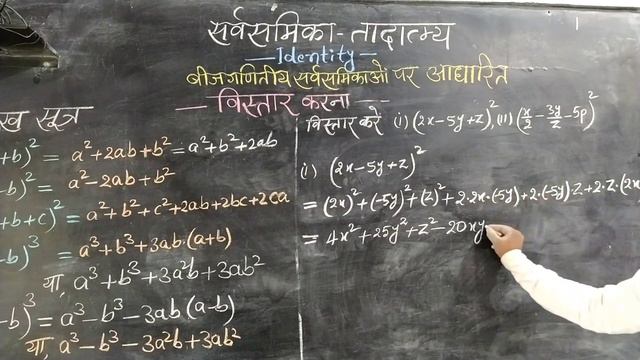 सर्वसमिका-तादात्म्य
— Identity —
बीजगणितीय सर्वसमिकाओं पर आधारित
— विस्तार करना —
ख सूत्र
+b)² = a²+2ab+b² = a²+b²+2ab
-b)² = a²-2ab+b²
+b+c)² = a²+b²+c²+2ab+2bc+2ca
+b)³ = a³+b³+3ab.(a+b)
या, a³+b³+3a²b+3ab²
-b)³ = a³-b³-3ab(a-b)
या, a³-b³-3a²b+3ab²
विस्तार करें (i) (2x-5y+z)², (ii) (x/2 - 3y/z - 5p)²
(i) (2x-5y+z)²
= (2x)²+(-5y)²+(z)²+2.2x.(-5y)+2.(-5y).z+2.z.(2x
= 4x²+25y²+z²-20xy